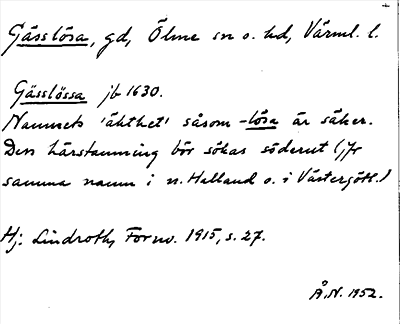 Gässlösa, gd, Ölme sn o. hd, Värml. l.
Gässlössa jb 1630.
Namnets 'äkthet' såsom -lösa är säker.
Dess härstamning bör sökas söderut (jfr
samma namn i n. Halland o. i Västergötl.)
Hj. Lindroth, Fornv. 1915, s. 27.
Å.N. 1952.